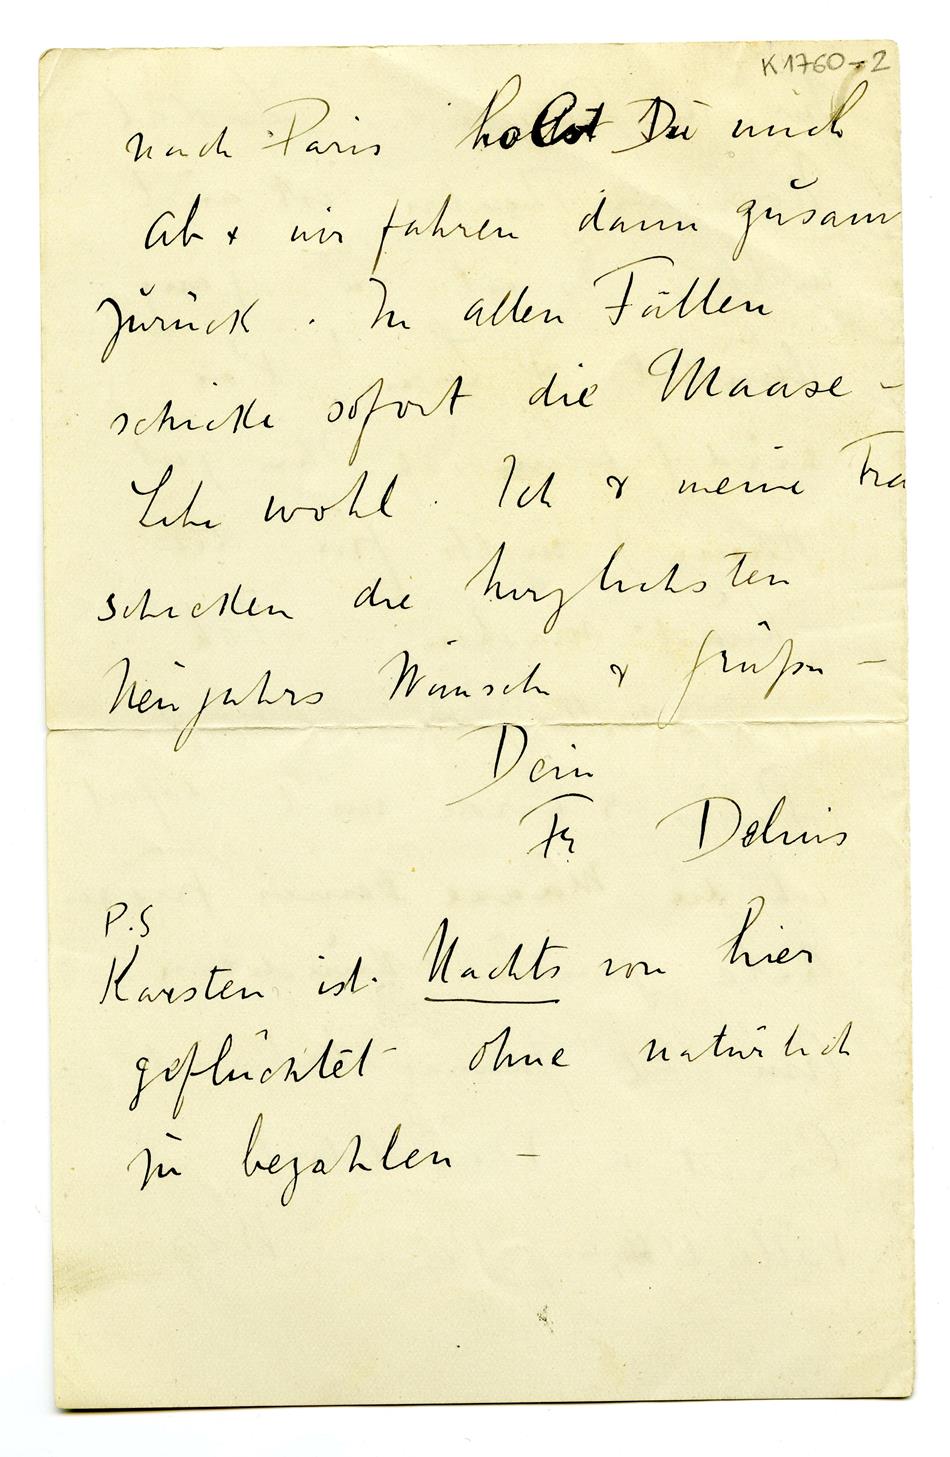 K1760-2
nach Paris holst Du mich
ab & wir fahren dann zusam
zurück. In allen Fällen
schicke sofort die Maase -
Lebe wohl. Ich & meine Fra
schicken die herzlichsten
Neujahrs Wünsche & grüsse -
Dein
Fr Delius
P.S
Karsten ist Nachts von hier
geflüchtet ohne natürlich
zu bezahlen -